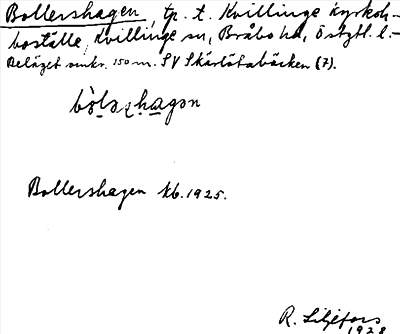 Bollershagen, tp. t. Kvillinge kyrkoh-
boställe, Kvillinge sn, Bråbo hd, Östgtl. l.-
Beläget omkr. 150 m. SV Skärlötabäcken (7).
Bollershagen kb. 1925.
R. Liljefors
1928